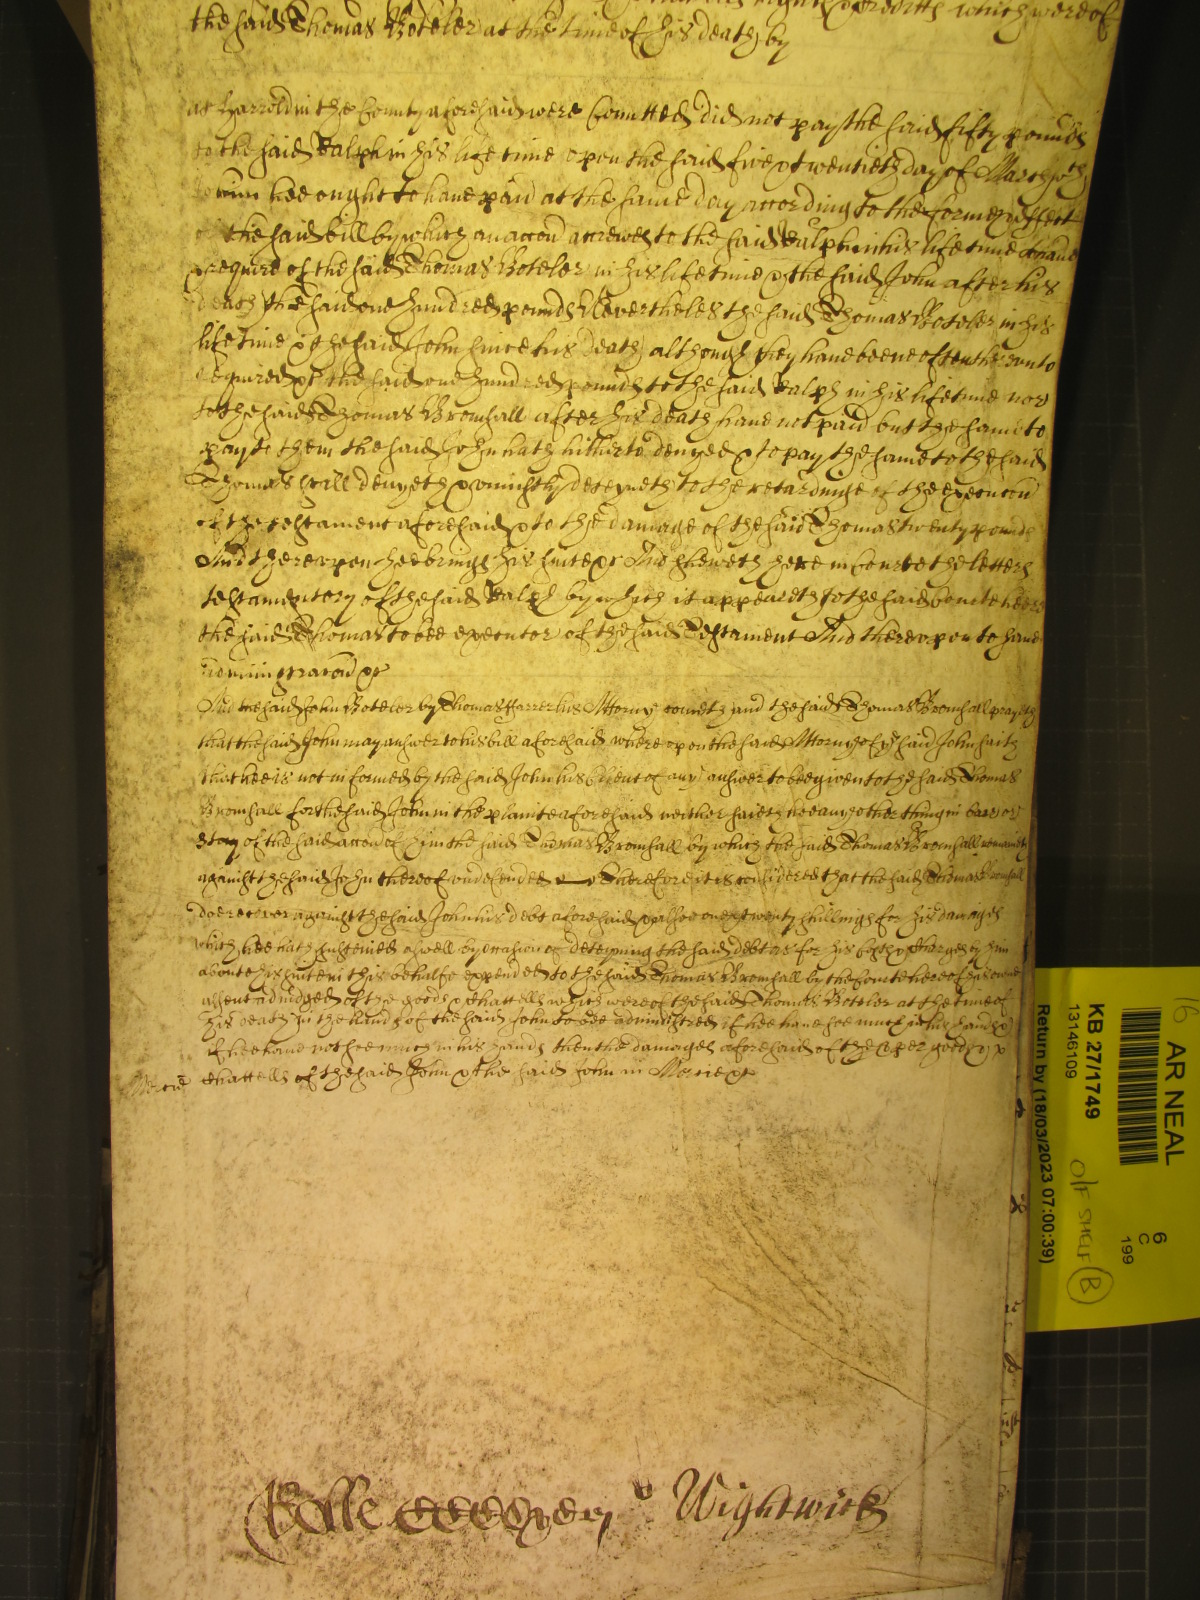 rights & creditts which were of
the said Thomas Boteler at the time of his death by
at Harrold in the County aforesaid were Comitted did not pay the said fifty pounds
to the said Ralph in his life time upon the said five & twentieth day of March wch
to him hee ought to have paid at the same day according to the forme & effect
of the said bill by which an accon accrewed to the said Ralph in his life time to have
& require of the said Thomas Boteler in his life time & the said John after his
death the said one hundred pounds Nevertheles the said Thomas Boteler in his
life time & the said John since his death although they have beene often thereunto
required &c the said one hundred pounds to the said Ralph in his life time nor
to the said Thomas Bromsall after his death have not paid but the same to
pay to them the said John hath hitherto denyed & to pay the same to the said
Thomas still denyeth & uniustly deteyneth to the retardinge of the execucon
of the testament aforesaid & to the damage of the said Thomas twenty pounds
And thereupon hee brings his suite &c And sheweth here in Courte the letters
testamentory of the said Ralph by which it appeareth to the said Courte here
the said Thomas to bee executor of the said Testament And thereupon to have
administracon &c
And the said John Boteler by Thomas Farrer his Attorny cometh and the said Thomas Bromsall prayeth
that the said John may answer to his bill aforesaid where upon the said Attorny of ye said John saith
that hee is not informed by the said John his Client of any answer to bee given to the said Thomas
Bromsall for the said John in the plainte aforesaid neither saieth hee any other thing in barr or
stay of the said accon of him the said Thomas Bromsall by which the said Thomas Bromsall remaineth
against the said John thereof undefended Therefore it is considered that the said Thomas Bromsall
doe recover against the said John his debt aforesaid & alsoe one & twenty shillings for his damages
which hee hath susteined aswell by occasion of deteyning the said debt as for his costs & charges by him
about his suite in this behalfe expended to the said Thomas Bromsall by the Courte here of his owne
assent adiudged of the goods & chattells which were of the said Thomas Boteler at the time of
his death in the hands of the said John to bee administred if hee have soe much in his hands &
if hee have not soe much in his hands then the damages aforesaid of the proper goods &
Mercie chattells of the said John & the said John in Mercie &c
Rolle Wightwick
AR NEAL
KB 27/1749
13146109
Return by (18/03/2023 07:00:39)
6
C
199
16
O/F SHELF B